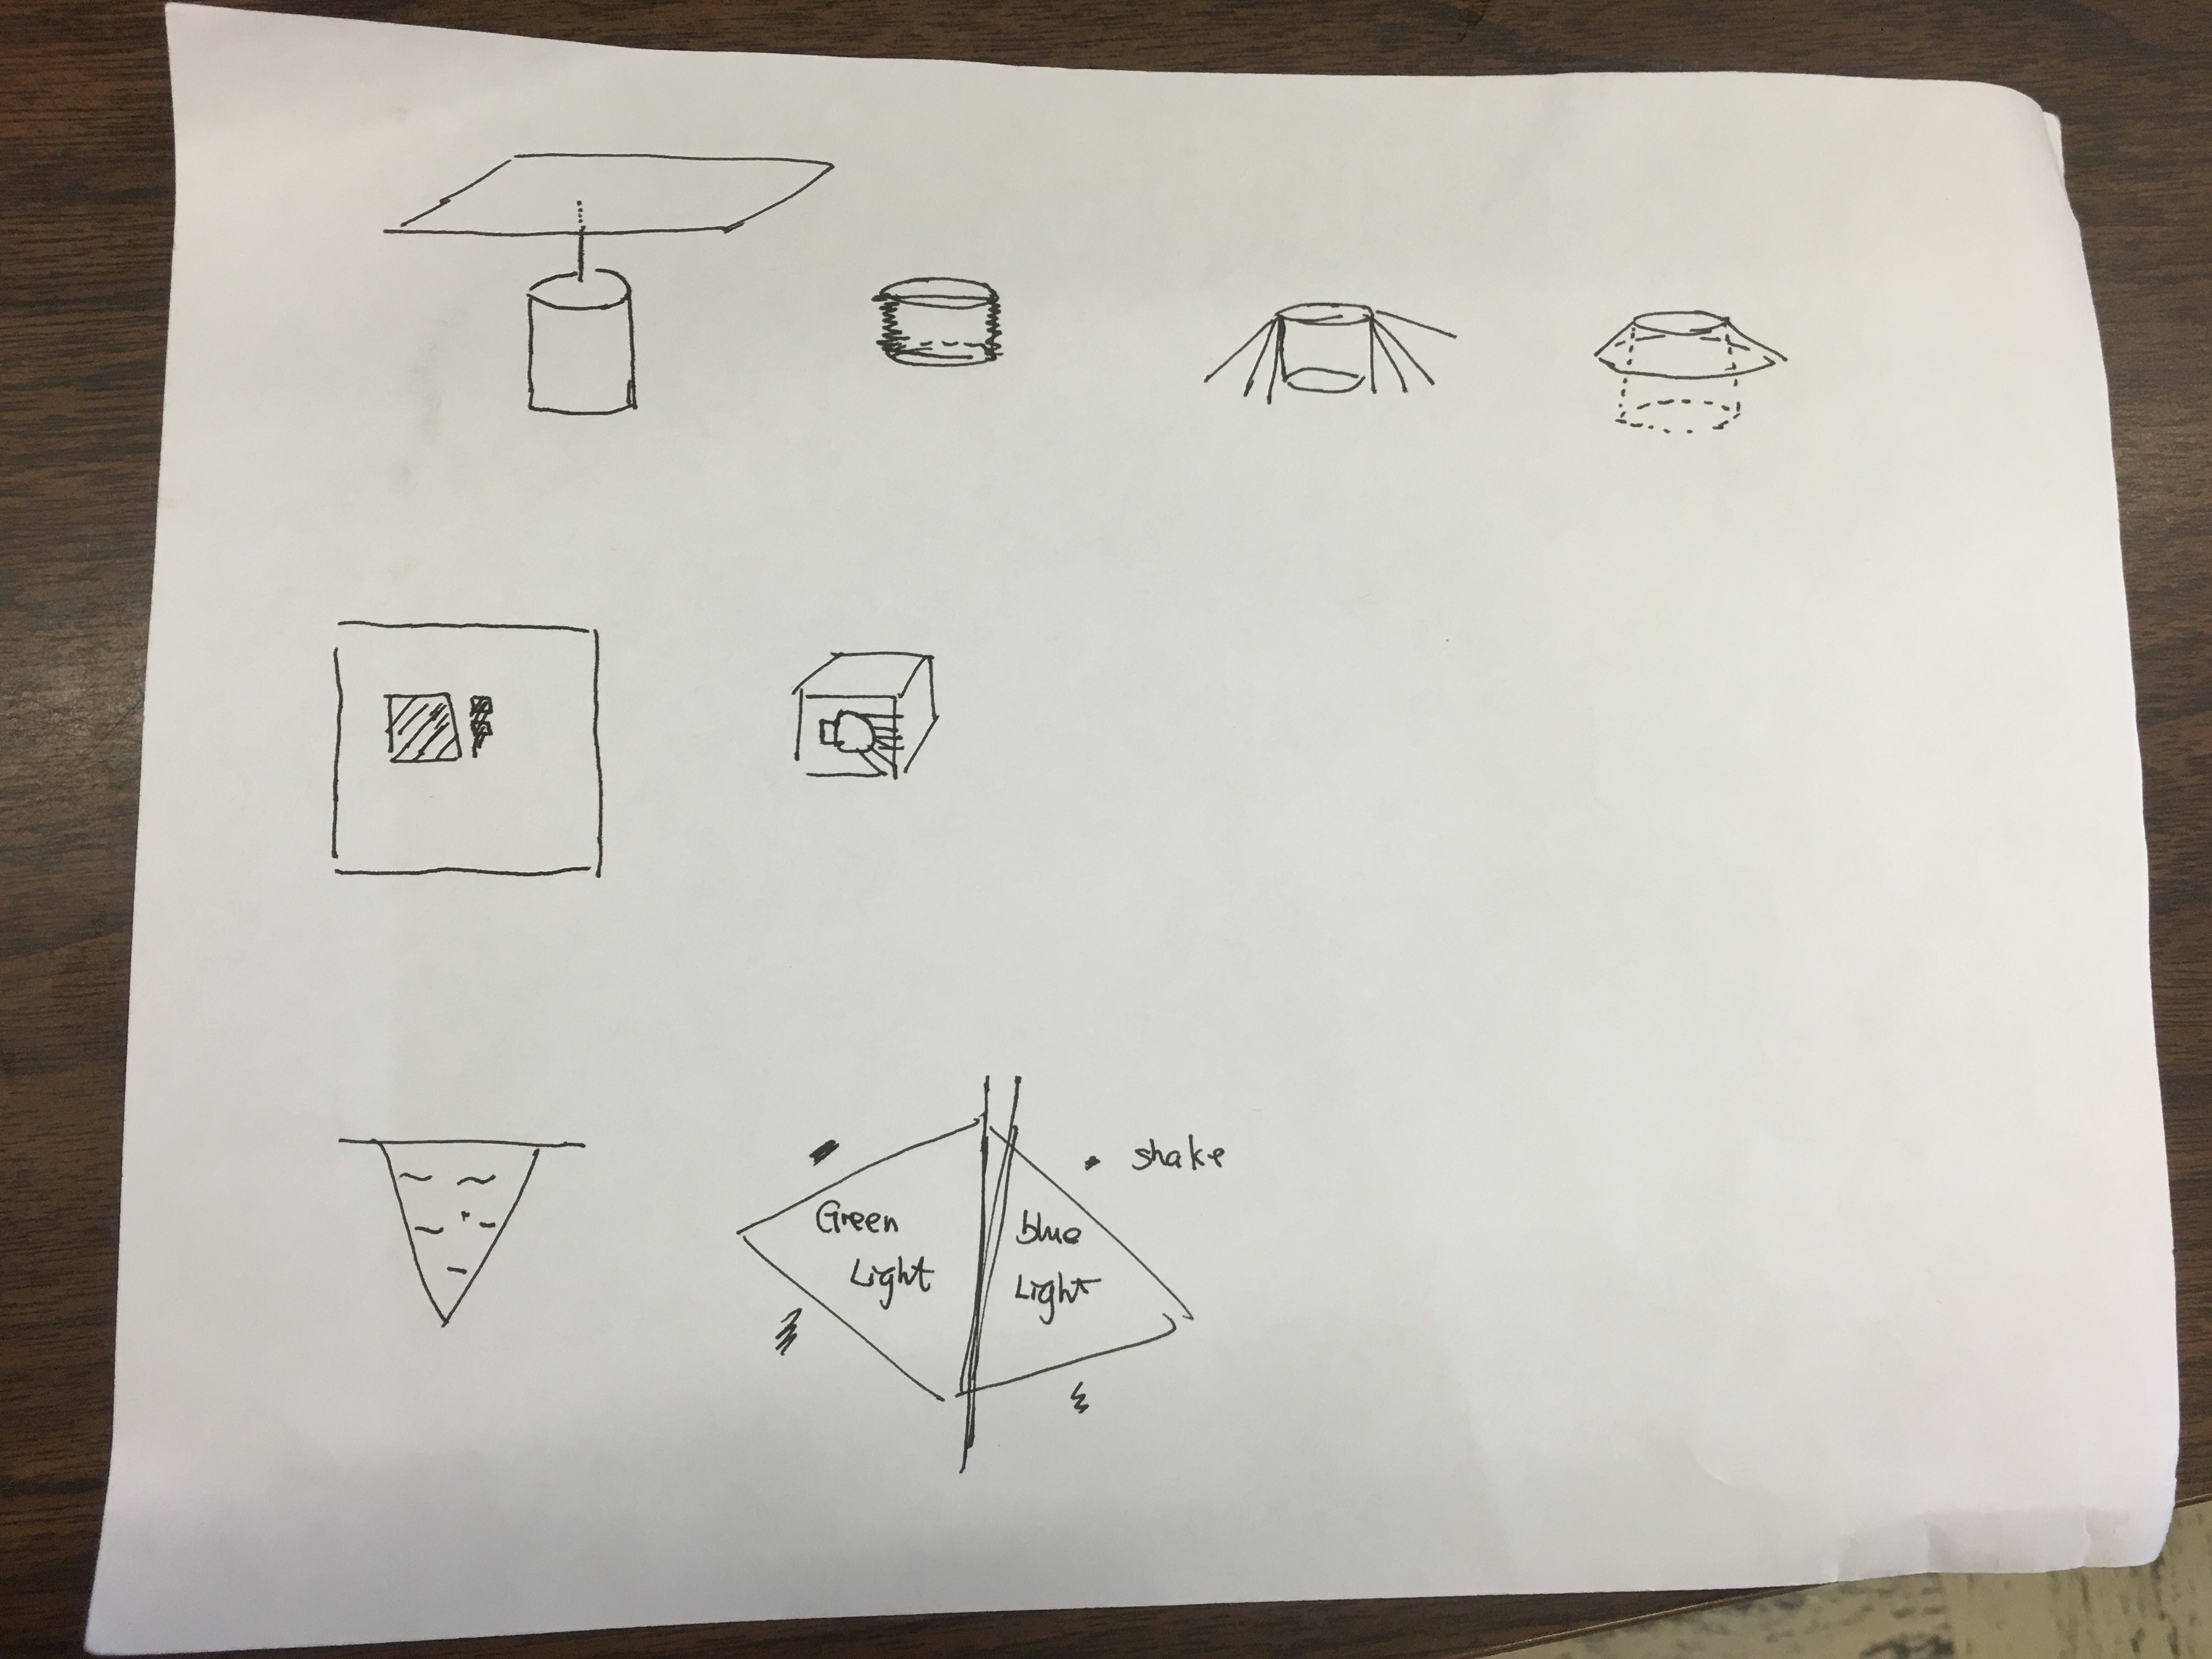 shake
Green
Light
blue
Light